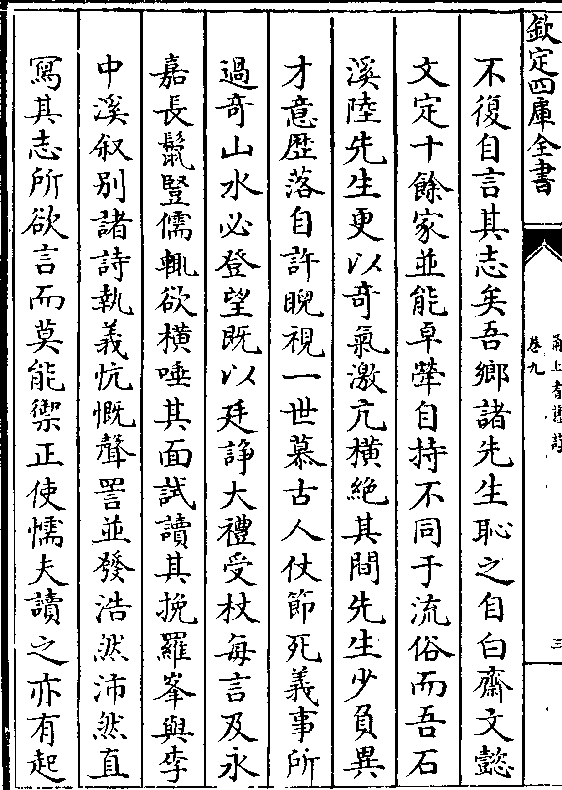 欽定四庫全書
甬上耆舊詩
卷九
三
不復自言其志矣吾鄉諸先生恥之自白齋文懿
文定十餘家並能卓犖自持不同于流俗而吾石
溪陸先生更以奇氣激亢橫絕其間先生少負異
才意歴落自許睨視一世慕古人仗節死義事所
過奇山水必登望既以廷諍大禮受杖每言及永
嘉長鬛豎儒輒欲橫唾其面試讀其挽羅峯與李
中溪叙别諸詩執義忼慨聲詈並發浩然沛然直
冩其志所欲言而莫能禦正使懦夫讀之亦有起